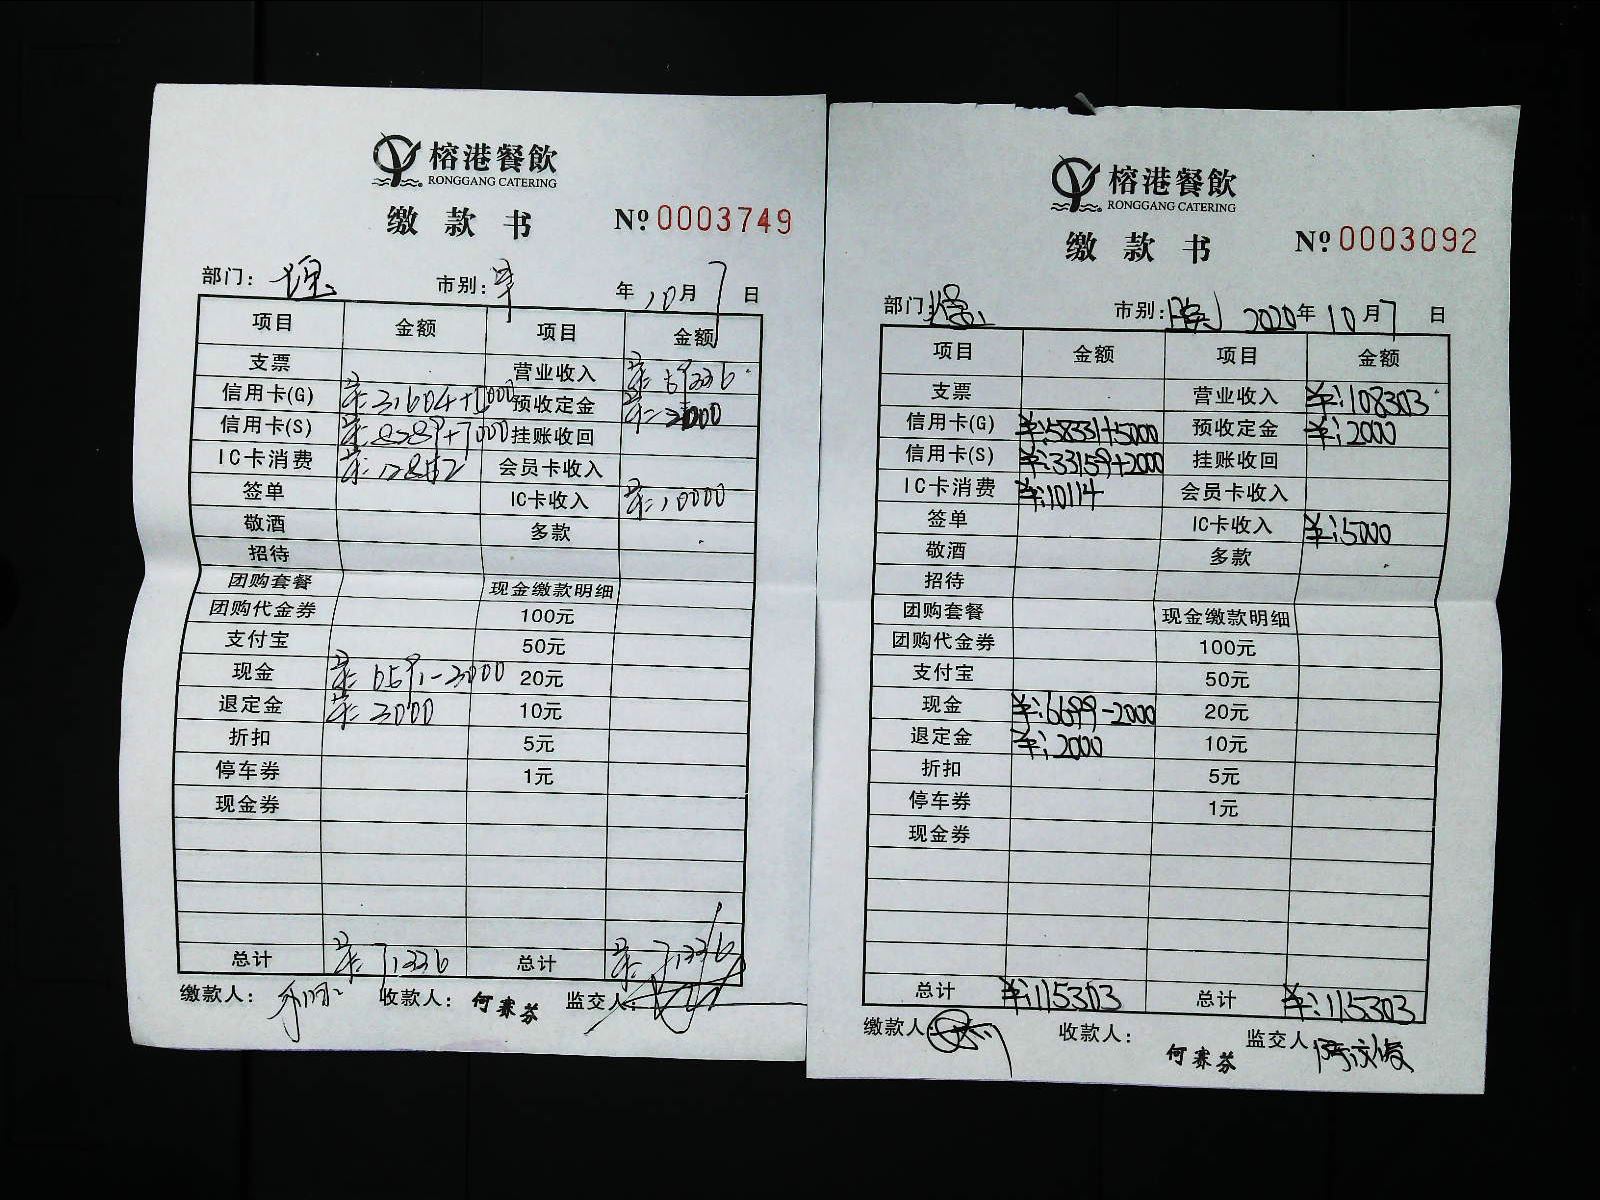 榕港餐飲
RONGGANG CATERING
缴款书 Nº 0003749
部门: 市别: 年 10月7日
项目 金额 项目 金额
支票 营业收入
信用卡(G) 31604+ 预收定金
信用卡(S) +7000 挂账收回
IC卡消费 12852 会员卡收入
签单 IC卡收入 10000
敬酒 多款
招待
团购套餐 现金缴款明细
团购代金券 100元
支付宝 50元
现金 6591-3000 20元
退定金 3000 10元
折扣 5元
停车券 1元
现金券
总计 71336 总计 71336
缴款人: 收款人: 何赛芬 监交人:
榕港餐飲
RONGGANG CATERING
缴款书 Nº 0003092
部门: 市别: 晚 2020年10月7日
项目 金额 项目 金额
支票 营业收入 ¥:108303
信用卡(G) ¥:58331+5000 预收定金 ¥:2000
信用卡(S) ¥:33159+2000 挂账收回
IC卡消费 ¥:10114 会员卡收入
签单 IC卡收入 ¥:5000
敬酒 多款
招待
团购套餐 现金缴款明细
团购代金券 100元
支付宝 50元
现金 ¥:6699-2000 20元
退定金 ¥:2000 10元
折扣 5元
停车券 1元
现金券
总计 ¥:115303 总计 ¥:115303
缴款人: 收款人: 何赛芬 监交人: